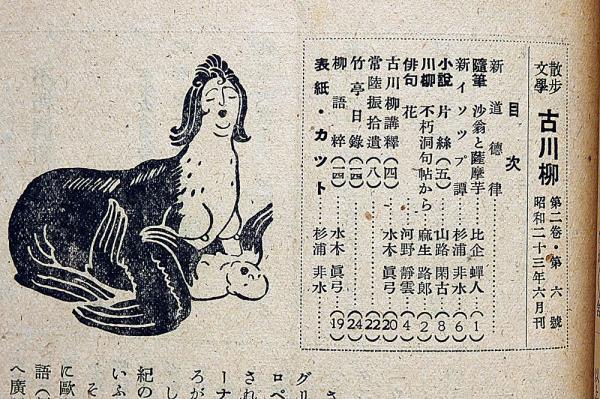 散歩文學
古川柳
第二卷・第六號
昭和二十三年六月刊
目次
新道德律
隨筆 沙翁と薩摩芋 比企蟬人 (1)
新イソップ譚 杉浦非水 (6)
小說 片絲(五) 山路閑古 (8)
川柳 不朽洞句帖から 麻生路郎 (2)
俳句 花 河野靜雲 (4)
古川柳講釋(四) 水木眞弓 (20)
常陸振拾遺(八) (22)
竹亭日錄(一四) (24)
柳語粹(一四) 水木眞弓 (19)
表紙・カット 杉浦非水
さ
グリ
ロペ
され
ーナ
ろが
し
紀の
いふ
そ
に歐
語(
へ廣